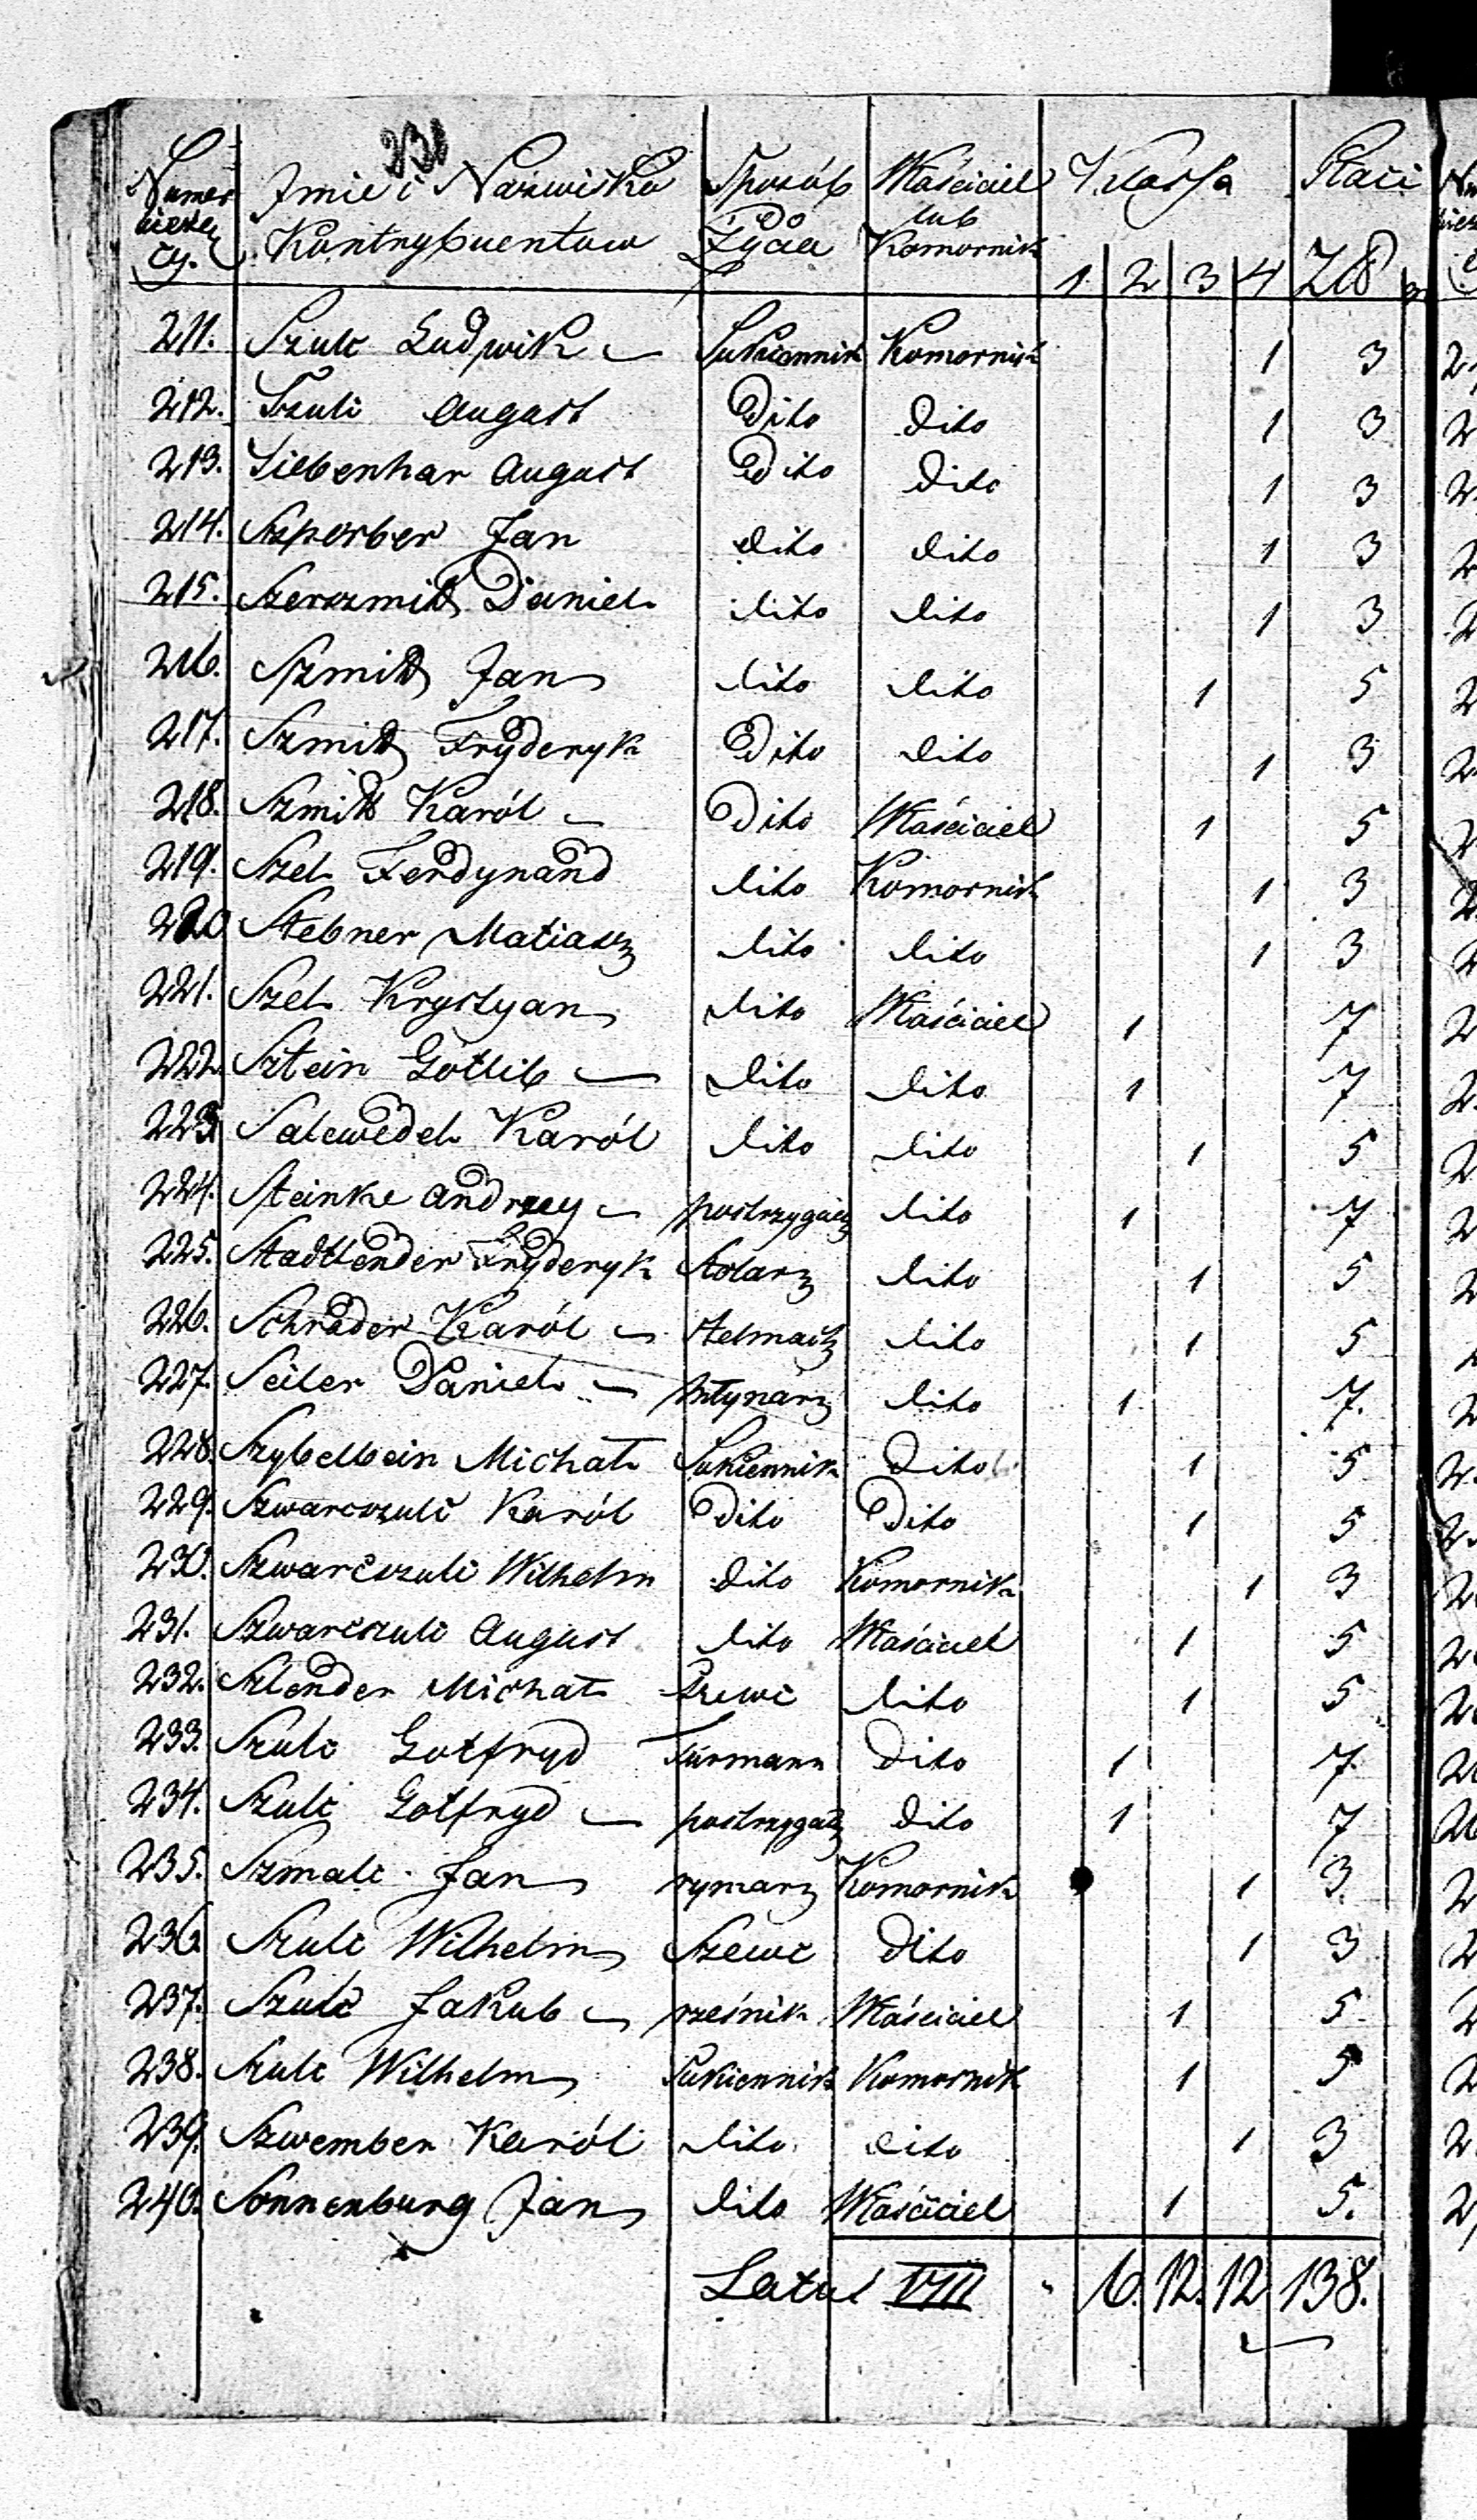 231
Numer Imie i Nazwisko Sposób Właściciel Klassa Płaci
bieżą Kontrybuentów do Życia lub Komornik
cy. 1. 2 3 4 Zł gr
211. Szulc Ludwik Sukiennik Komornik 1 3
212. Szulc August Dito Dito 1 3
213. Siebenhar August Dito Dito 1 3
214. Szperber Jan dito dito 1 3
215. Szerszmitt Daniel dito dito 1 3
216. Szmitt Jan dito dito 1 5
217. Szmitt Fryderyk Dito dito 1 3
218. Szmitt Karól Dito Właściciel 1 5
219. Szel Ferdynand dito Komornik 1 3
220 Stebner Matiasz dito dito 1 3
221. Szel Krystyan dito Właściciel 1 7
222 Sztein Gotlib dito dito 1 7
223 Salewedel Karól dito dito 1 5
224. Steinke Andrzey postrzygacz dito 1 7
225. Stadtlender Fryderyk Stolarz dito 1 5
226. Schrader Karól Stelmach dito 1 5
227. Seiler Daniel Młynarz dito 1 7.
228. Szybelbein Michał Sukiennik Dito 1 5
229. Szwarcszulc Karól Dito Dito 1 5
230. Szwarcszulc Wilhelm dito Komornik 1 3
231. Szwarcszulc August dito Właściciel 1 5
232. Szlender Michał Szewc dito 1 5
233. Szulc Gotfryd Furmann Dito 1 7.
234. Szulc Gotfryd postrzygacz Dito 1 7
235. Szmalc Jan rymarz Komornik 1 3
236. Szulc Wilhelm Szewc Dito 1 3
237. Szulc Jakub rzeźnik Właściciel 1 5
238. Szulc Wilhelm Sukiennik Komornik 1 5
239. Szwember Karól dito dito 1 3
240. Sonnenburg Jan dito Właściciel 1 5.
Latus VIII 6. 12. 12 138.